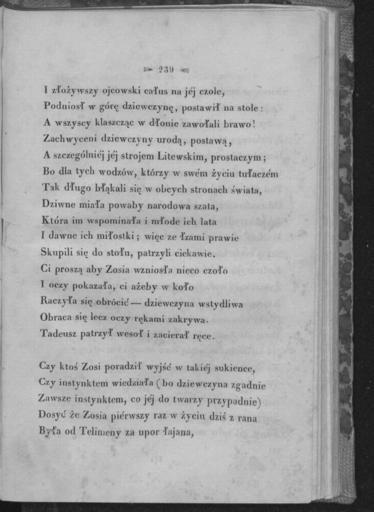 239
I złożywszy ojcowski całus na jéj czole,
Podniosł w górę dziewczynę, postawił na stole :
A wszyscy klaszcząc w dłonie zawołali brawo!
Zachwyceni dziewczyny urodą, postawą,
A szczególniéj jéj strojem Litewskim, prostaczym ;
Bo dla tych wodzów, którzy w swém życiu tułaczém
Tak długo błąkali się w obcych stronach świata,
Dziwne miała powaby narodowa szata,
Która im wspominała i młode ich lata
I dawne ich miłostki ; więc ze łzami prawie
Skupili się do stołu, patrzyli ciekawie.
Ci proszą aby Zosia wzniosła nieco czoło
I oczy pokazała, ci ażeby w koło
Raczyła się obrócić — dziewczyna wstydliwa
Obraca się lecz oczy rękami zakrywa.
Tadeusz patrzył wesoł i zacierał ręce.
Czy ktoś Zosi poradził wyjść w takiéj sukience,
Czy instynktem wiedziała ( bo dziewczyna zgadnie
Zawsze instynktem, co jéj do twarzy przypadnie)
Dosyć że Zosia piérwszy raz w życiu dziś z rana
Była od Telimeny za upor łajana,